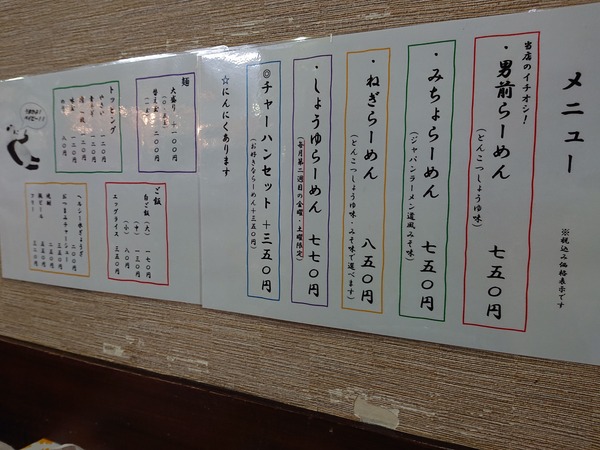 メニュー
※税込み価格表示です
当店のイチオシ!
・男前らーめん 七五〇円
(とんこつしょうゆ味)
・みちょらーめん 七五〇円
(ジャパンラーメン道風みそ味)
・ねぎらーめん 八五〇円
(とんこつしょうゆ味・みそ味で選べます)
・しょうゆらーめん 七七〇円
(毎月第二週目の金曜・土曜限定)
◎チャーハンセット +三五〇円
(お好きならーめん+三五〇円)
☆にんにくあります
麺
大盛り 一〇〇円
替え玉 二〇〇円
トッピング
やさい 一二〇円
ご飯
白ご飯(大) 一七〇円
(中) 一三〇円
(小) 八〇円
エッグライス 三五〇円
ヘルシー赤ぎょうざ 二〇〇円
おつまみチャーシュー
瓶ビール